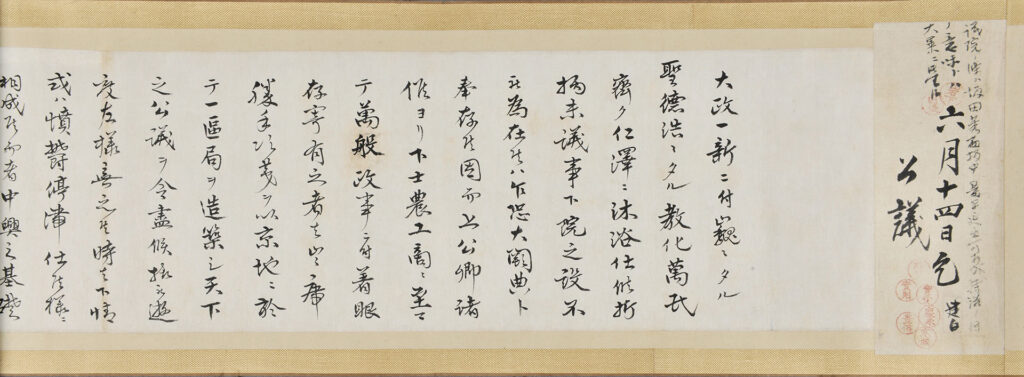 六月十四日乞
建白
公議
大政一新ニ付巍〻タル
聖德浩〻タル教化萬民
齊ク仁澤ニ沐浴仕候折
柄未議事下院之設不
被為在候ハ乍恐大闕典ト
奉存候因而上公卿諸
侯ヨリ下士農工商ニ至マ
テ萬般政事ニ付着眼
存寄有之者ハ出席
勝手次第以京地ニ於
テ一區局ヲ造築シ天下
之公議ヲ令盡候様被遊
度左様無之候時ハ下情
或ハ憤鬱停滞仕候様ニ
相成候而者中興之基礎